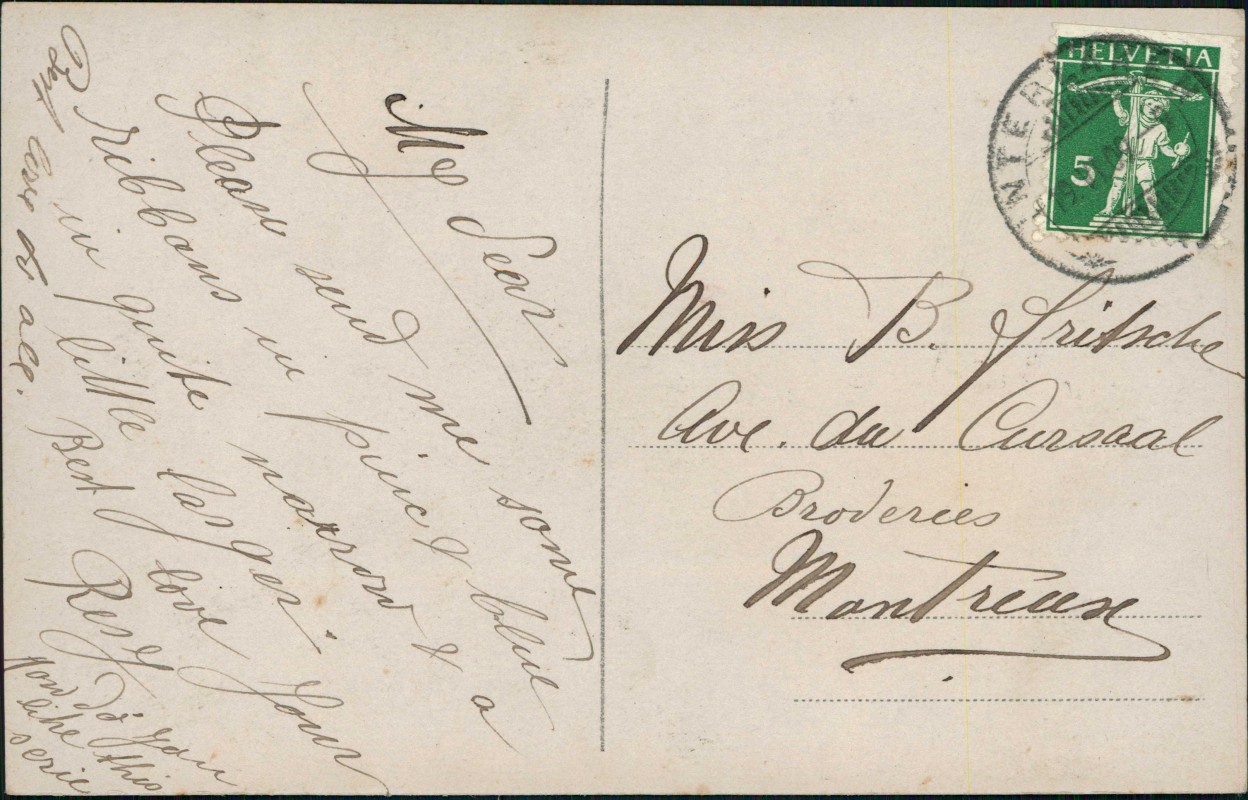 My dear
Please send me some
ribbons in pink & blue
in quite narrow & a
little larger.
Best love Your
Resy
love to all.
How do you
like this
serie
HELVETIA
5
Miss B. Fritsche
Ave. du Cursaal
Broderies
Montreux